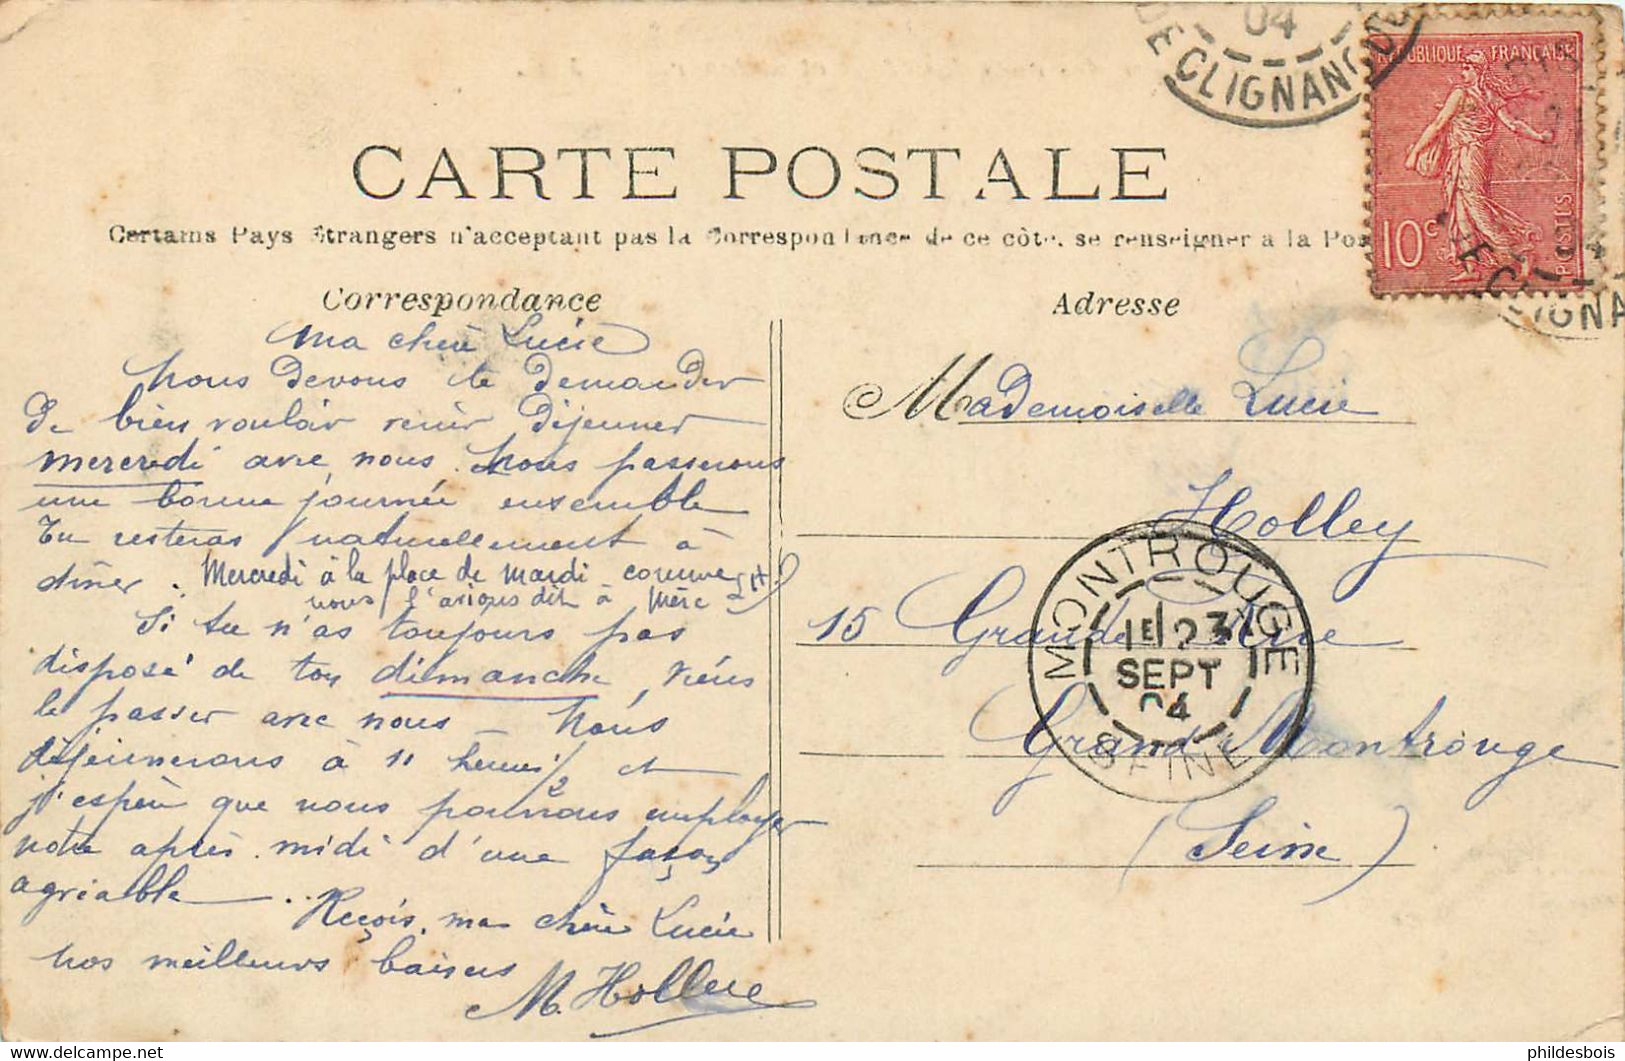 DE CLIGNANCOU
04
REPUBLIQUE FRANÇAISE
10c
POSTES
CARTE POSTALE
Certains Pays Etrangers n'acceptant pas la Correspondance de ce côté, se renseigner à la Pos
Correspondance
Ma chère Lucie
Nous devons te demander
de bien vouloir venir déjeuner
mercredi avec nous. Nous passerons
une bonne journée ensemble
Tu resteras naturellement à
dîner. Mercredi à la place de Mardi comme
nous l'avions dit à Mère
Si tu n'as toujours pas
disposé de ton dimanche, viens
le passer avec nous - Nous
déjeunerons à 11 heures 1/2 et
j'espère que nous pourrons employer
notre après midi d'une façon
agréable...
Reçois, ma chère Lucie
nos meilleurs baisers
M. Hollere
Adresse
Mademoiselle Lucie
Holley
15 Grande Rue
Grand Montrouge
(Seine)
MONTROUGE
1E 23
SEPT
04
SEINE
DE CLIGNA
https://www.delcampe.net
phildesbois